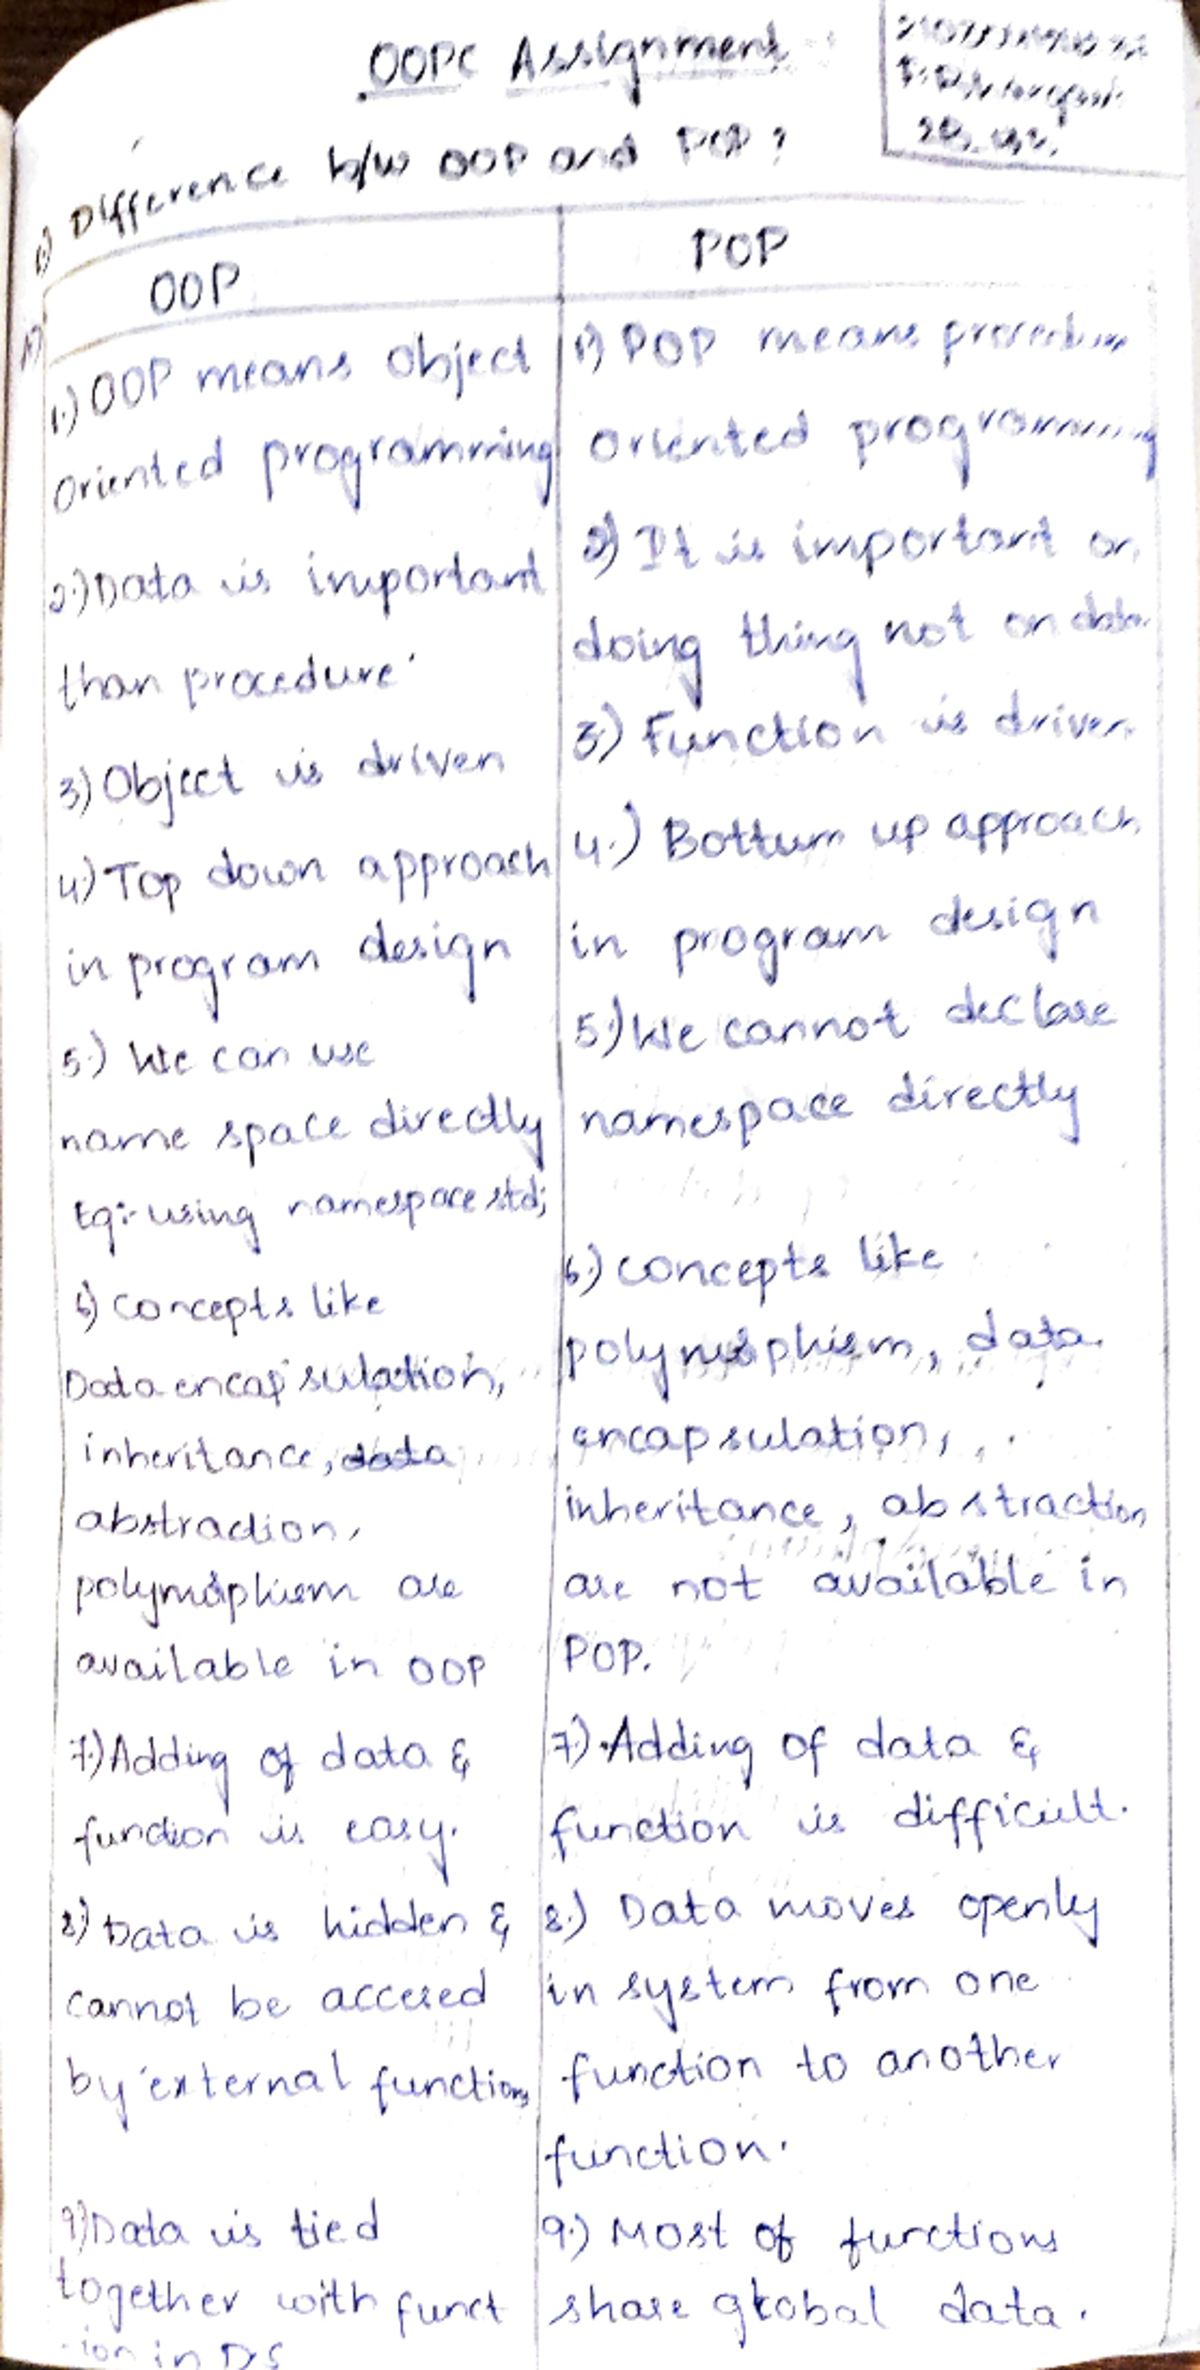 OOPC Assignment
1) Difference b/w OOP and POP?
OOP
POP
1.) OOP means Object
Oriented programming
2.) Data is important
than procedure.
3) Object is driven
4) Top down approach
in program design
5.) We can use
name space directly
Eg:- using namespace std;
6) concepts like
Data encapsulation,
inheritance, data
abstraction,
polymorphism are
available in OOP
7.) Adding of data &
function is easy.
8) Data is hidden &
cannot be accesed
by external functions
9) Data is tied
together with funct
-ion in DS
1) POP means procedure
oriented programming
2) It is important on
doing thing not on data.
3.) Function is driven
4.) Bottum up approach
in program design
5.) We cannot declare
namespace directly
6.) concepts like
polymorphism, data
encapsulation,
inheritance, abstraction
are not available in
POP.
7.) Adding of data &
function is difficult.
8.) Data moves openly
in system from one
function to another
function.
9.) Most of functions
share global data.